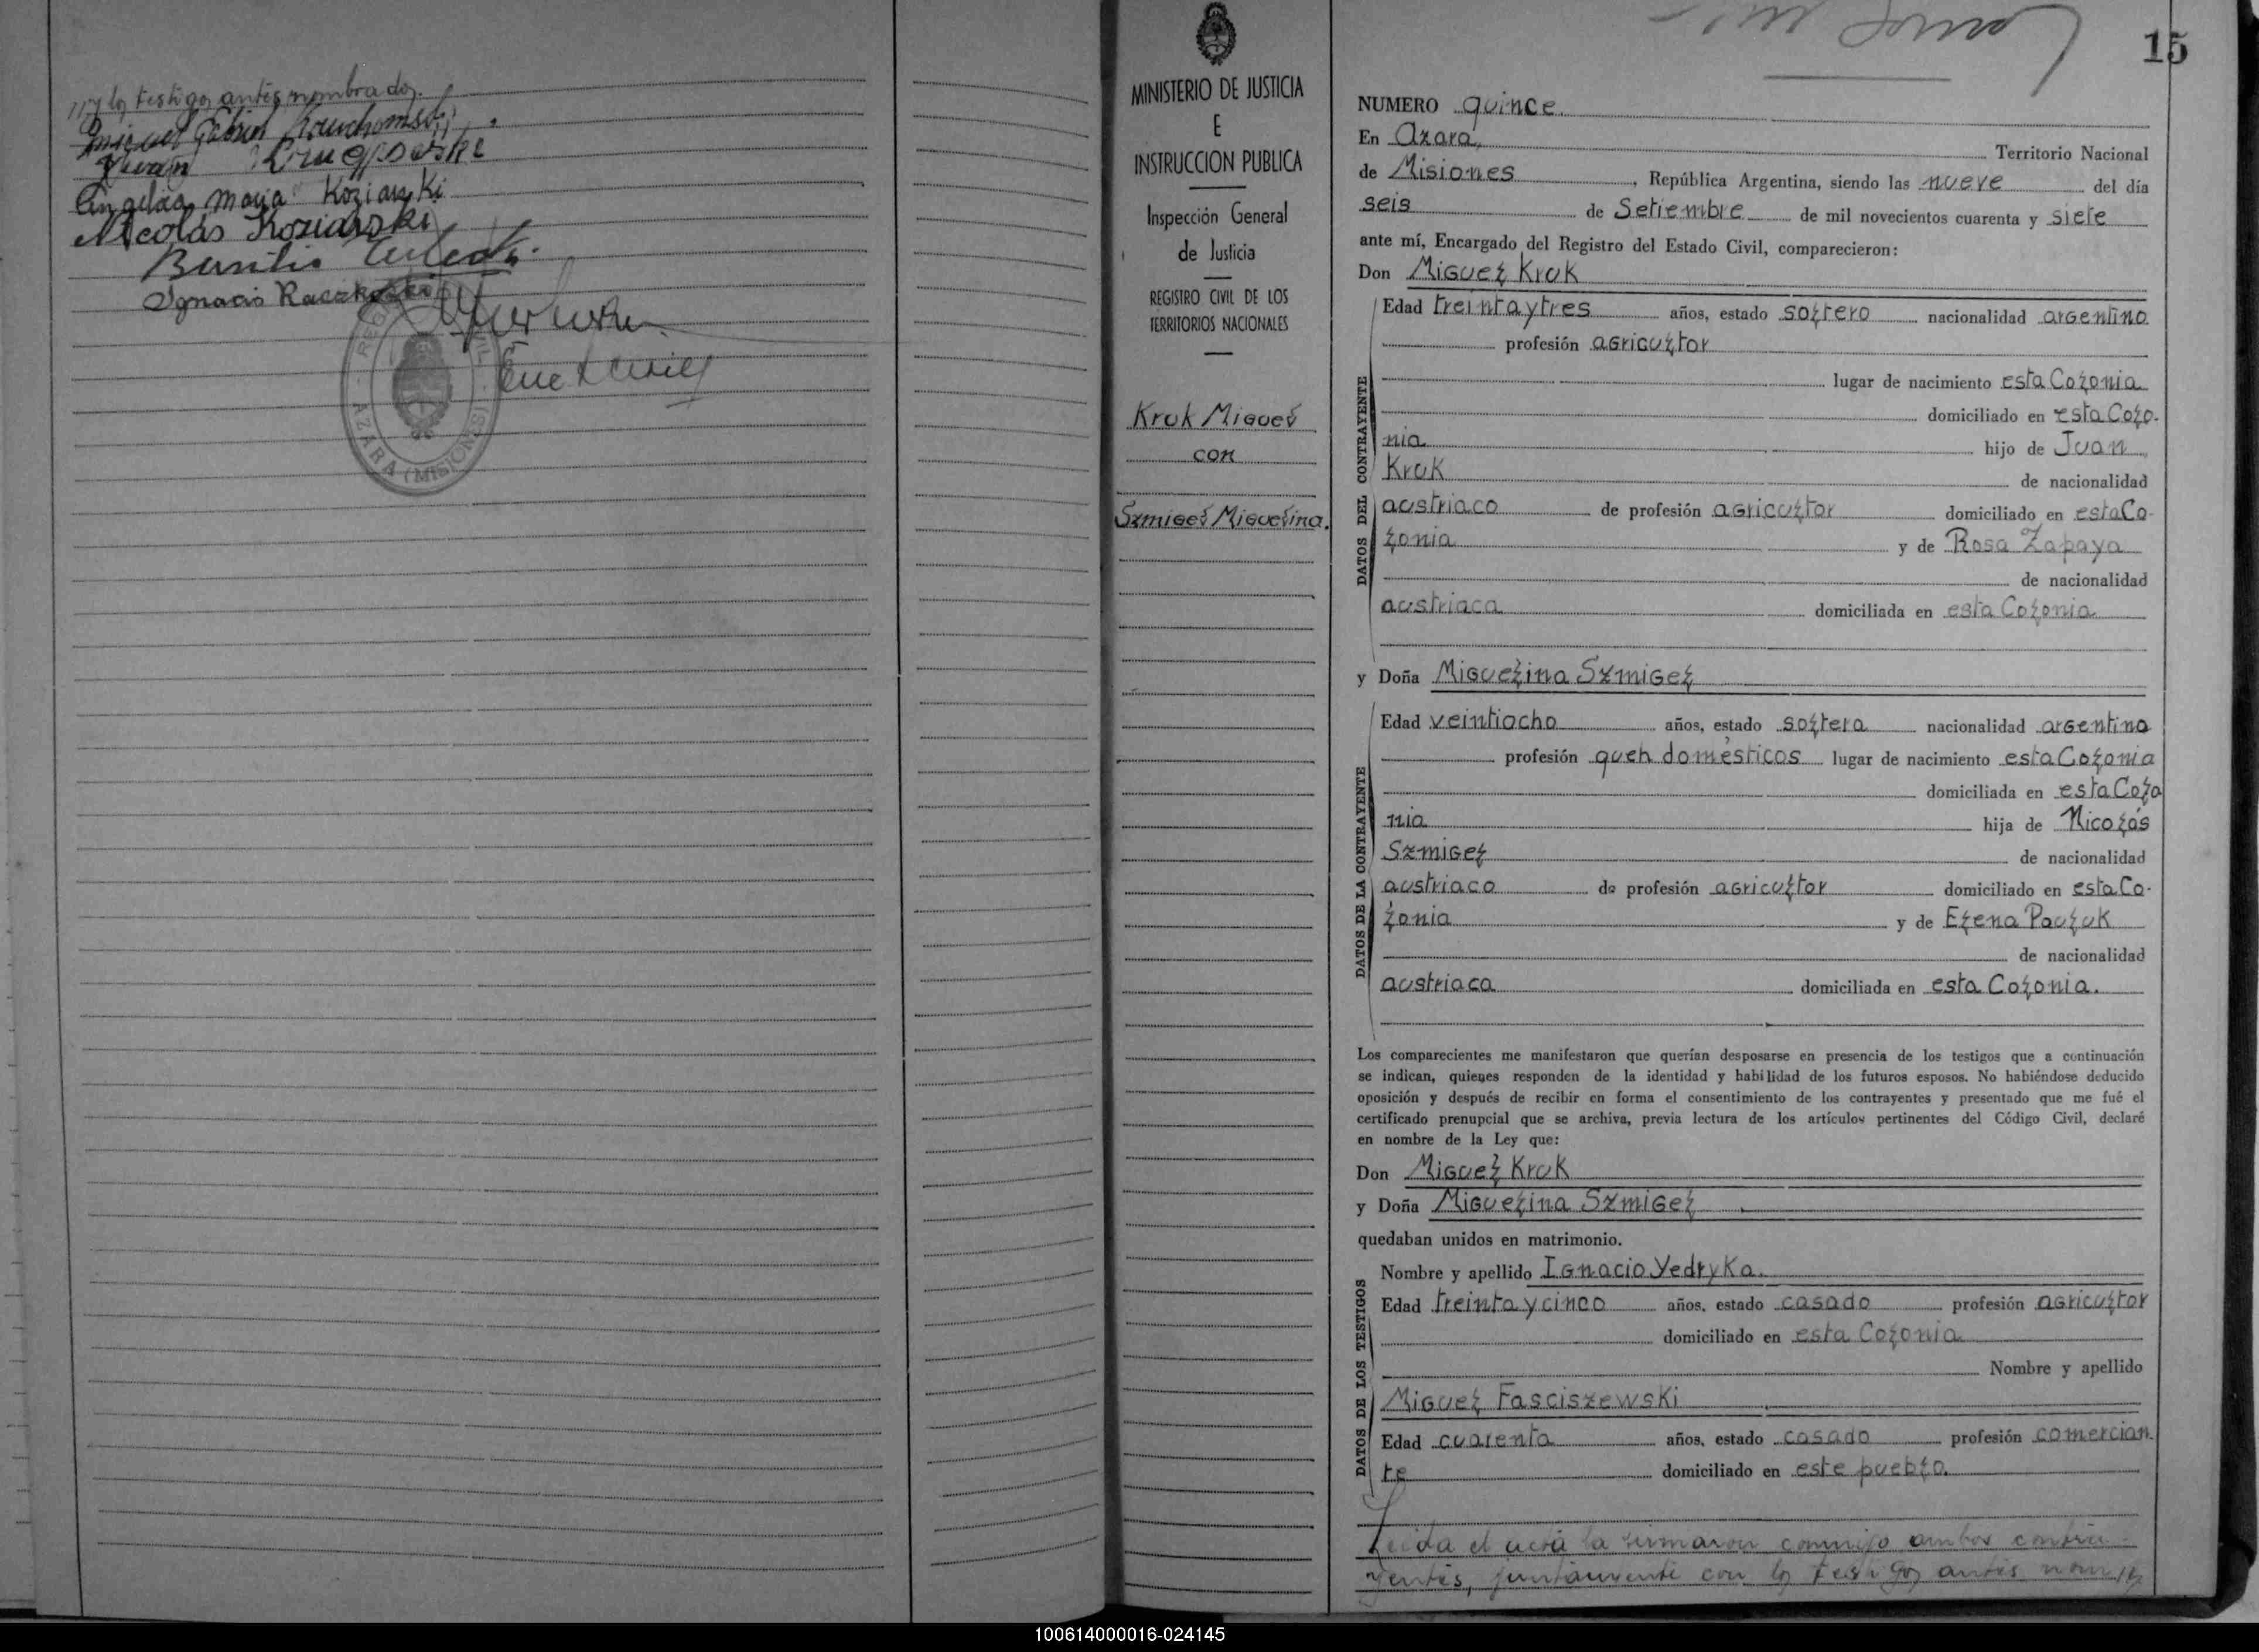 //y los testigos antes nombrados.
Miguel Gabriel
Juan
Angelica Maria Koziarski
Nicolás Koziarski
Basilio
Ignacio Raczkoski
Enc R Civil
REGISTRO CIVIL
AZARA (MISIONES)
MINISTERIO DE JUSTICIA
E
INSTRUCCION PUBLICA
Inspección General
de Justicia
REGISTRO CIVIL DE LOS
TERRITORIOS NACIONALES
Kruk Miguel
con
Szmigel Miguelina.
15
NUMERO quince
En Azara, Territorio Nacional
de Misiones, República Argentina, siendo las nueve del día
seis de Setiembre de mil novecientos cuarenta y siete
ante mí, Encargado del Registro del Estado Civil, comparecieron:
Don Miguel Kruk
DATOS DEL CONTRAYENTE
Edad treintaytres años, estado soltero nacionalidad argentino
profesión agricultor
lugar de nacimiento esta Colonia
domiciliado en esta Colo-
nia hijo de Juan
Kruk de nacionalidad
austriaco de profesión agricultor domiciliado en esta Co-
lonia y de Rosa Zapaya
de nacionalidad
austriaca domiciliada en esta Colonia
y Doña Miguelina Szmigel
DATOS DE LA CONTRAYENTE
Edad veintiocho años, estado soltera nacionalidad argentina
profesión queh domésticos lugar de nacimiento esta Colonia
domiciliada en esta Colo
nia hija de Nicolás
Szmigel de nacionalidad
austriaco de profesión agricultor domiciliado en esta Co-
lonia y de Elena Pauluk
de nacionalidad
austriaca domiciliada en esta Colonia.
Los comparecientes me manifestaron que querían desposarse en presencia de los testigos que a continuación
se indican, quienes responden de la identidad y habilidad de los futuros esposos. No habiéndose deducido
oposición y después de recibir en forma el consentimiento de los contrayentes y presentado que me fué el
certificado prenupcial que se archiva, previa lectura de los artículos pertinentes del Código Civil, declaré
en nombre de la Ley que:
Don Miguel Kruk
y Doña Miguelina Szmigel
quedaban unidos en matrimonio.
DATOS DE LOS TESTIGOS
Nombre y apellido Ignacio Yedryka.
Edad treinta y cinco años, estado casado profesión agricultor
domiciliado en esta Colonia
Nombre y apellido
Miguel Fasciszewski
Edad cuarenta años, estado casado profesión comercian-
te domiciliado en este pueblo.
Leida el acta la firmaron conmigo ambos contra-
yentes, juntamente con los testigos antes nom//
100614000016-024145